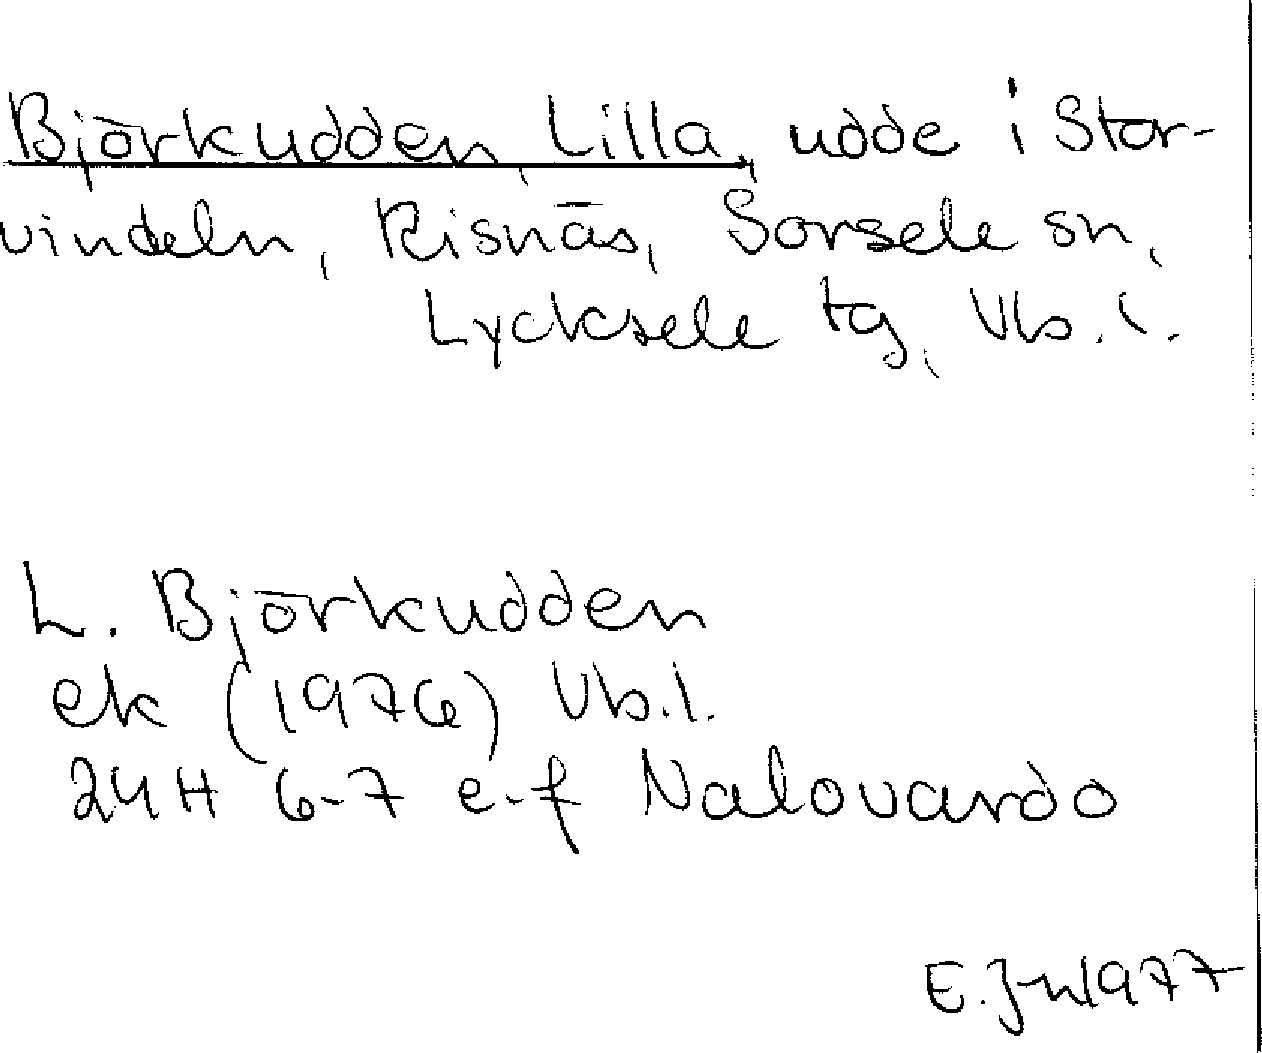 Björkudden, Lilla, udde i Stor-
vindeln, Risnäs, Sorsele sn,
Lycksele tg, Vb. l.
L. Björkudden
ek (1976) Vb.l.
24H 6-7 e-f Nalovardo
E. J-n 1977